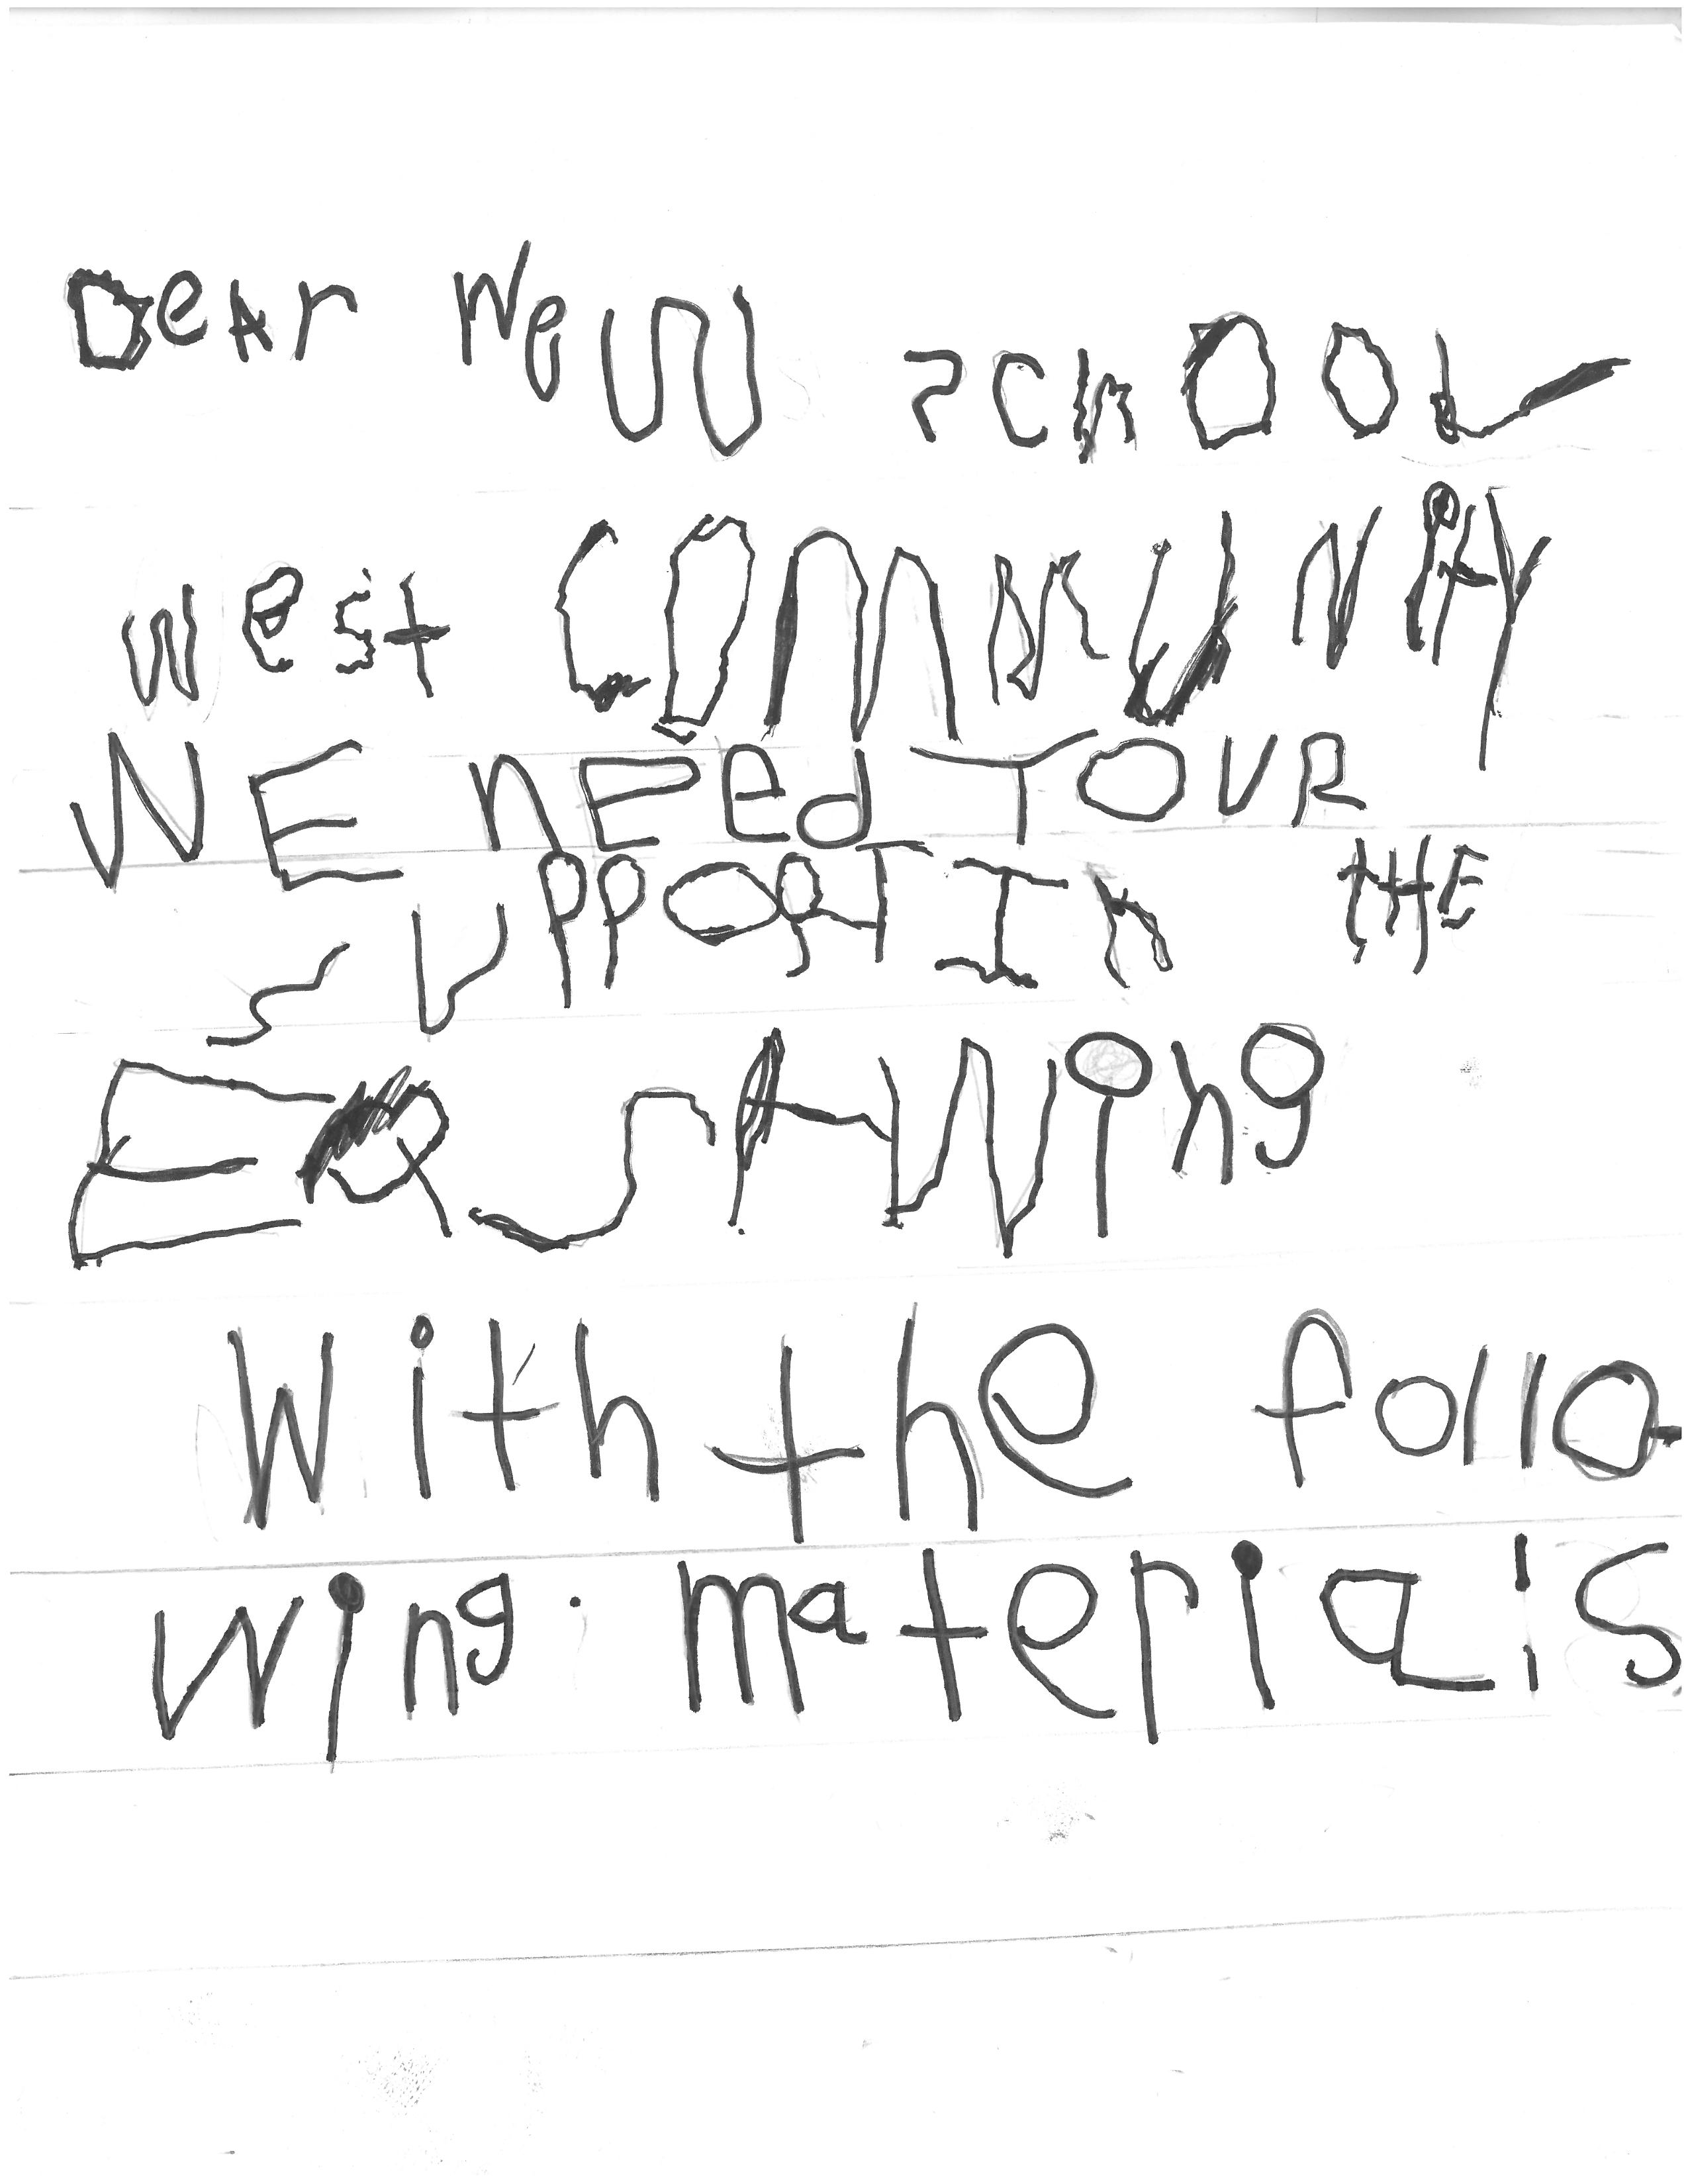 Dear New SCHOOL
west COMMUNITY
WE nEed YOUR
SUPPORT In tHE
EQ StUWing
With the follo
wing. materials